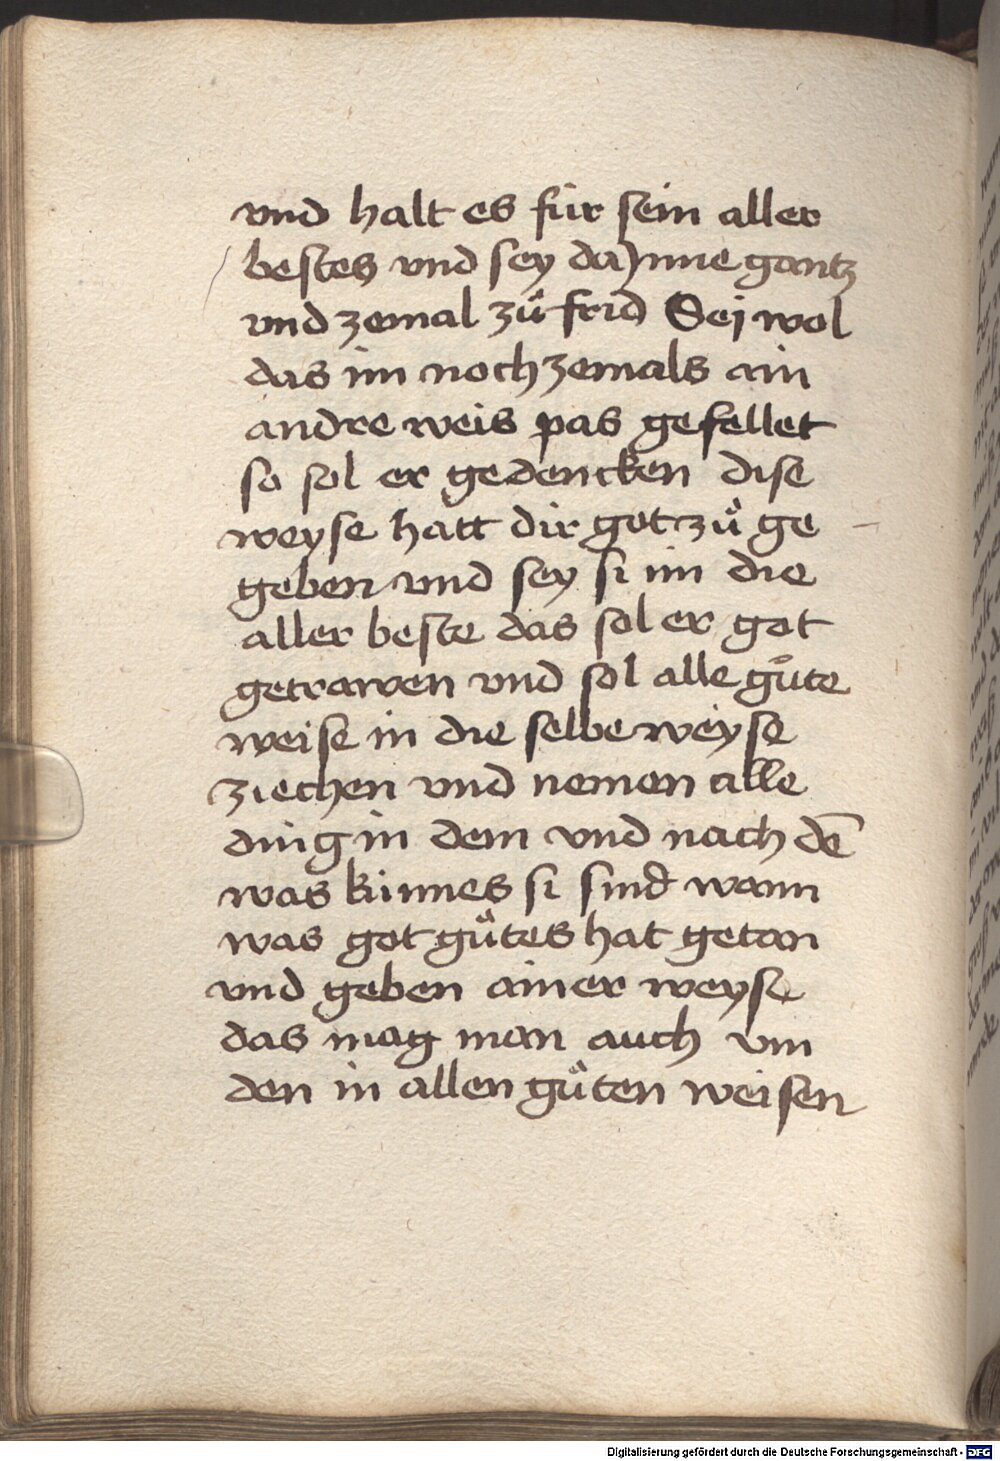 vnd halt es für sein aller
bestes vnd sey darjnne gantz
vnd zemal zuͦ frid Sej wol
das im noch zemals ain
andre weis pas gefellet
so sol er gedencken dise
weyse hatt dir got zuͦ ge
geben vnd sey si im die
aller beste das sol er got
getrawen vnd sol alle guͦte
weise in die selbe weyse
ziechen vnd nemen alle
ding in dem vnd nach dē
was künnes si sind wann
was got guͦtes hat getan
vnd geben ainer weyse
das mag man auch vin
den in allen guͦten weisen
Digitalisierung gefördert durch die Deutsche Forschungsgemeinschaft - DFG